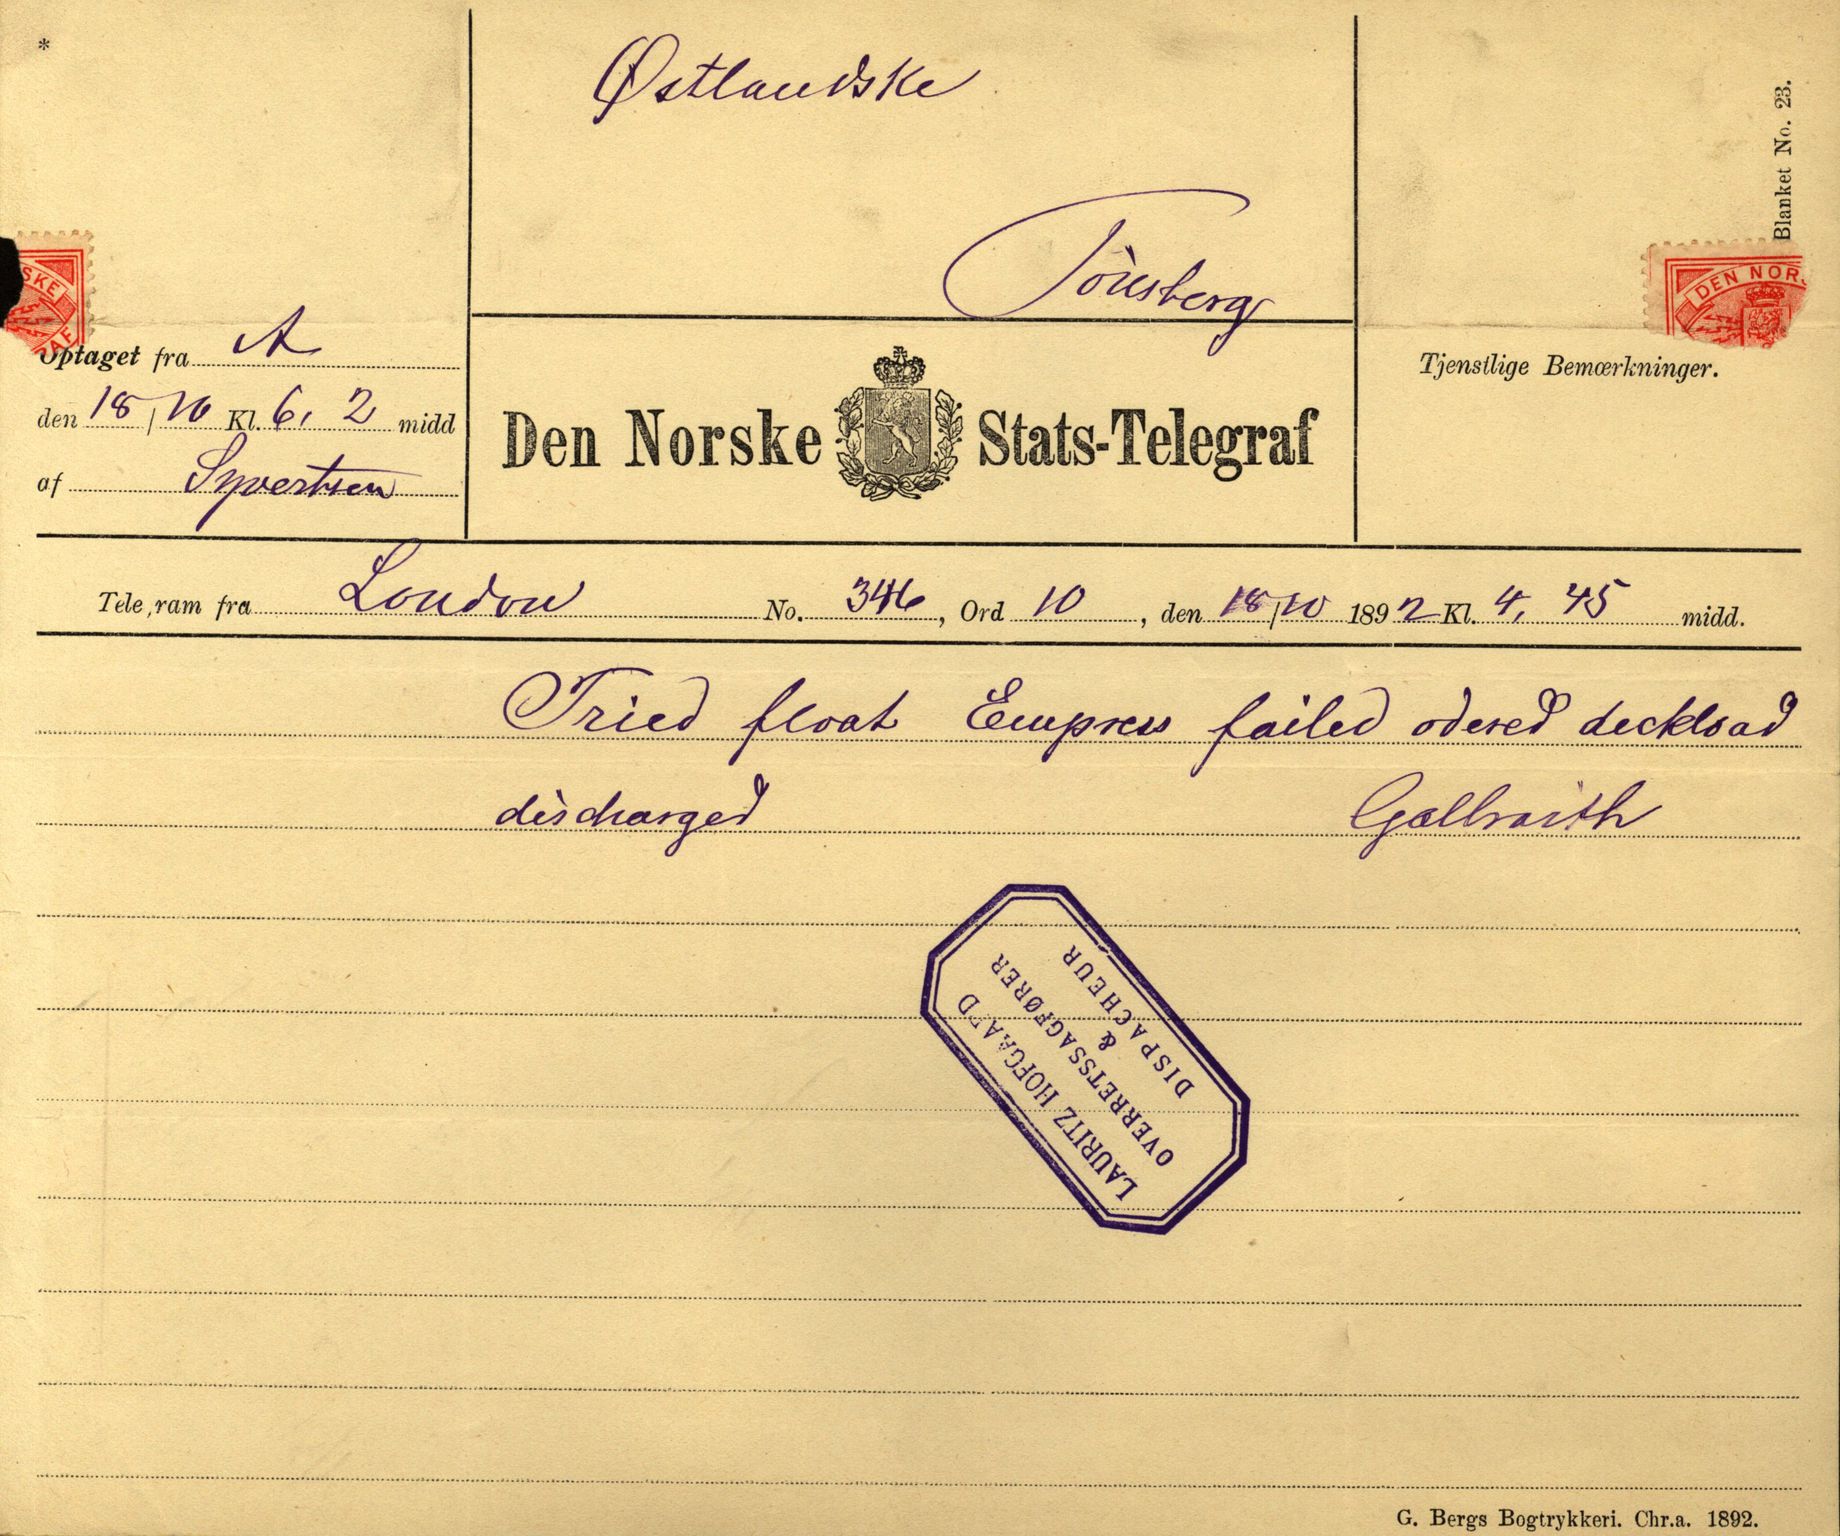 *
Østlandske
Tönsberg
Blanket No. 23.
SKE
RAF
DEN NOR
Optaget fra A
den 18/10 Kl. 6, 2 midd
af Syvertsen
Den Norske Stats-Telegraf
Tjenstlige Bemærkninger.
Tele ram fra London No. 346, Ord 10, den 18/10 1892 Kl. 4, 45 midd.
Tried float Empress failed odered deckload
discharged Galbraith
LAURITZ HOFGAARD
OVERRETSSAGFØRER
&
DISPACHEUR
G. Bergs Bogtrykkeri. Chr.a. 1892.